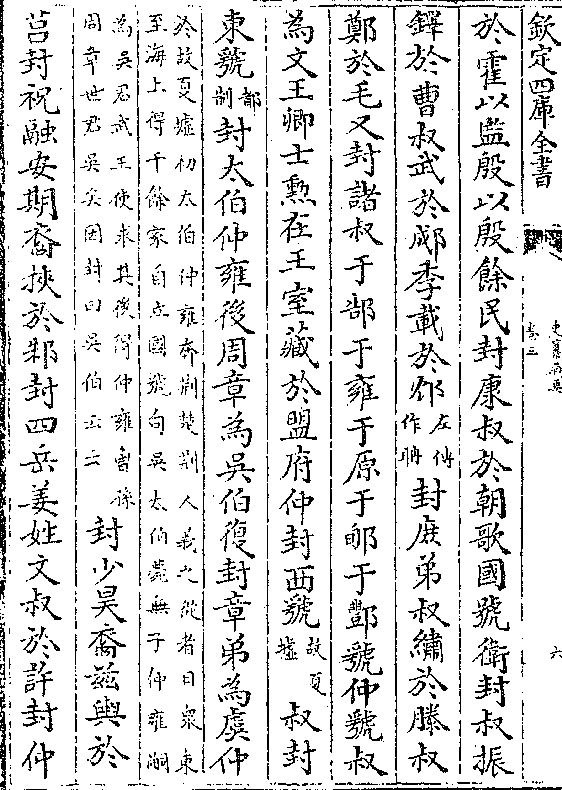 欽定四庫全書
卷三
六
於霍以監殷以殷餘民封康叔於朝歌國號衛封叔振
鐸於曹叔武於郕季載於𨚗左傳作聃封庶弟叔繡於滕叔
鄭於毛又封諸叔于郜于雍于原于郇于酆虢仲虢叔
為文王卿士勲在王室藏於盟府仲封西虢故夏墟叔封
東虢都制封太伯仲雍後周章為吳伯復封章弟為虞仲
於故夏墟初太伯仲雍奔荆楚荆人義之從者日衆東
至海上得千餘家自立國號句吳太伯薨無子仲雍嗣
為吳君武王使求其後得仲雍曾孫
周章世君吳矣因封曰吳伯云云
封少昊裔兹輿於
莒封祝融安期裔挾於邾封四岳姜姓文叔於許封仲